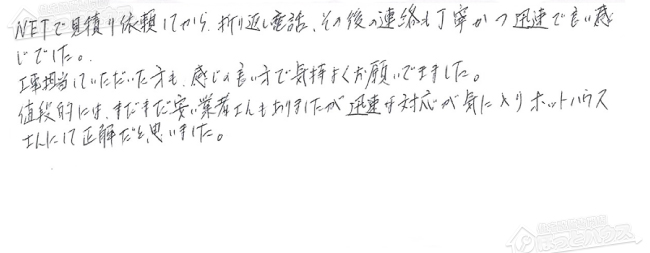 NETで見積り依頼してから、折り返し電話、その後の連絡も丁寧かつ迅速で良い感
じでした。
工事担当していただいた方も、感じの良い方で気持よくお願いできました。
値段的には、まだまだ安い業者さんもありましたが迅速な対応が気に入りホットハウス
さんにして正解だと思いました。